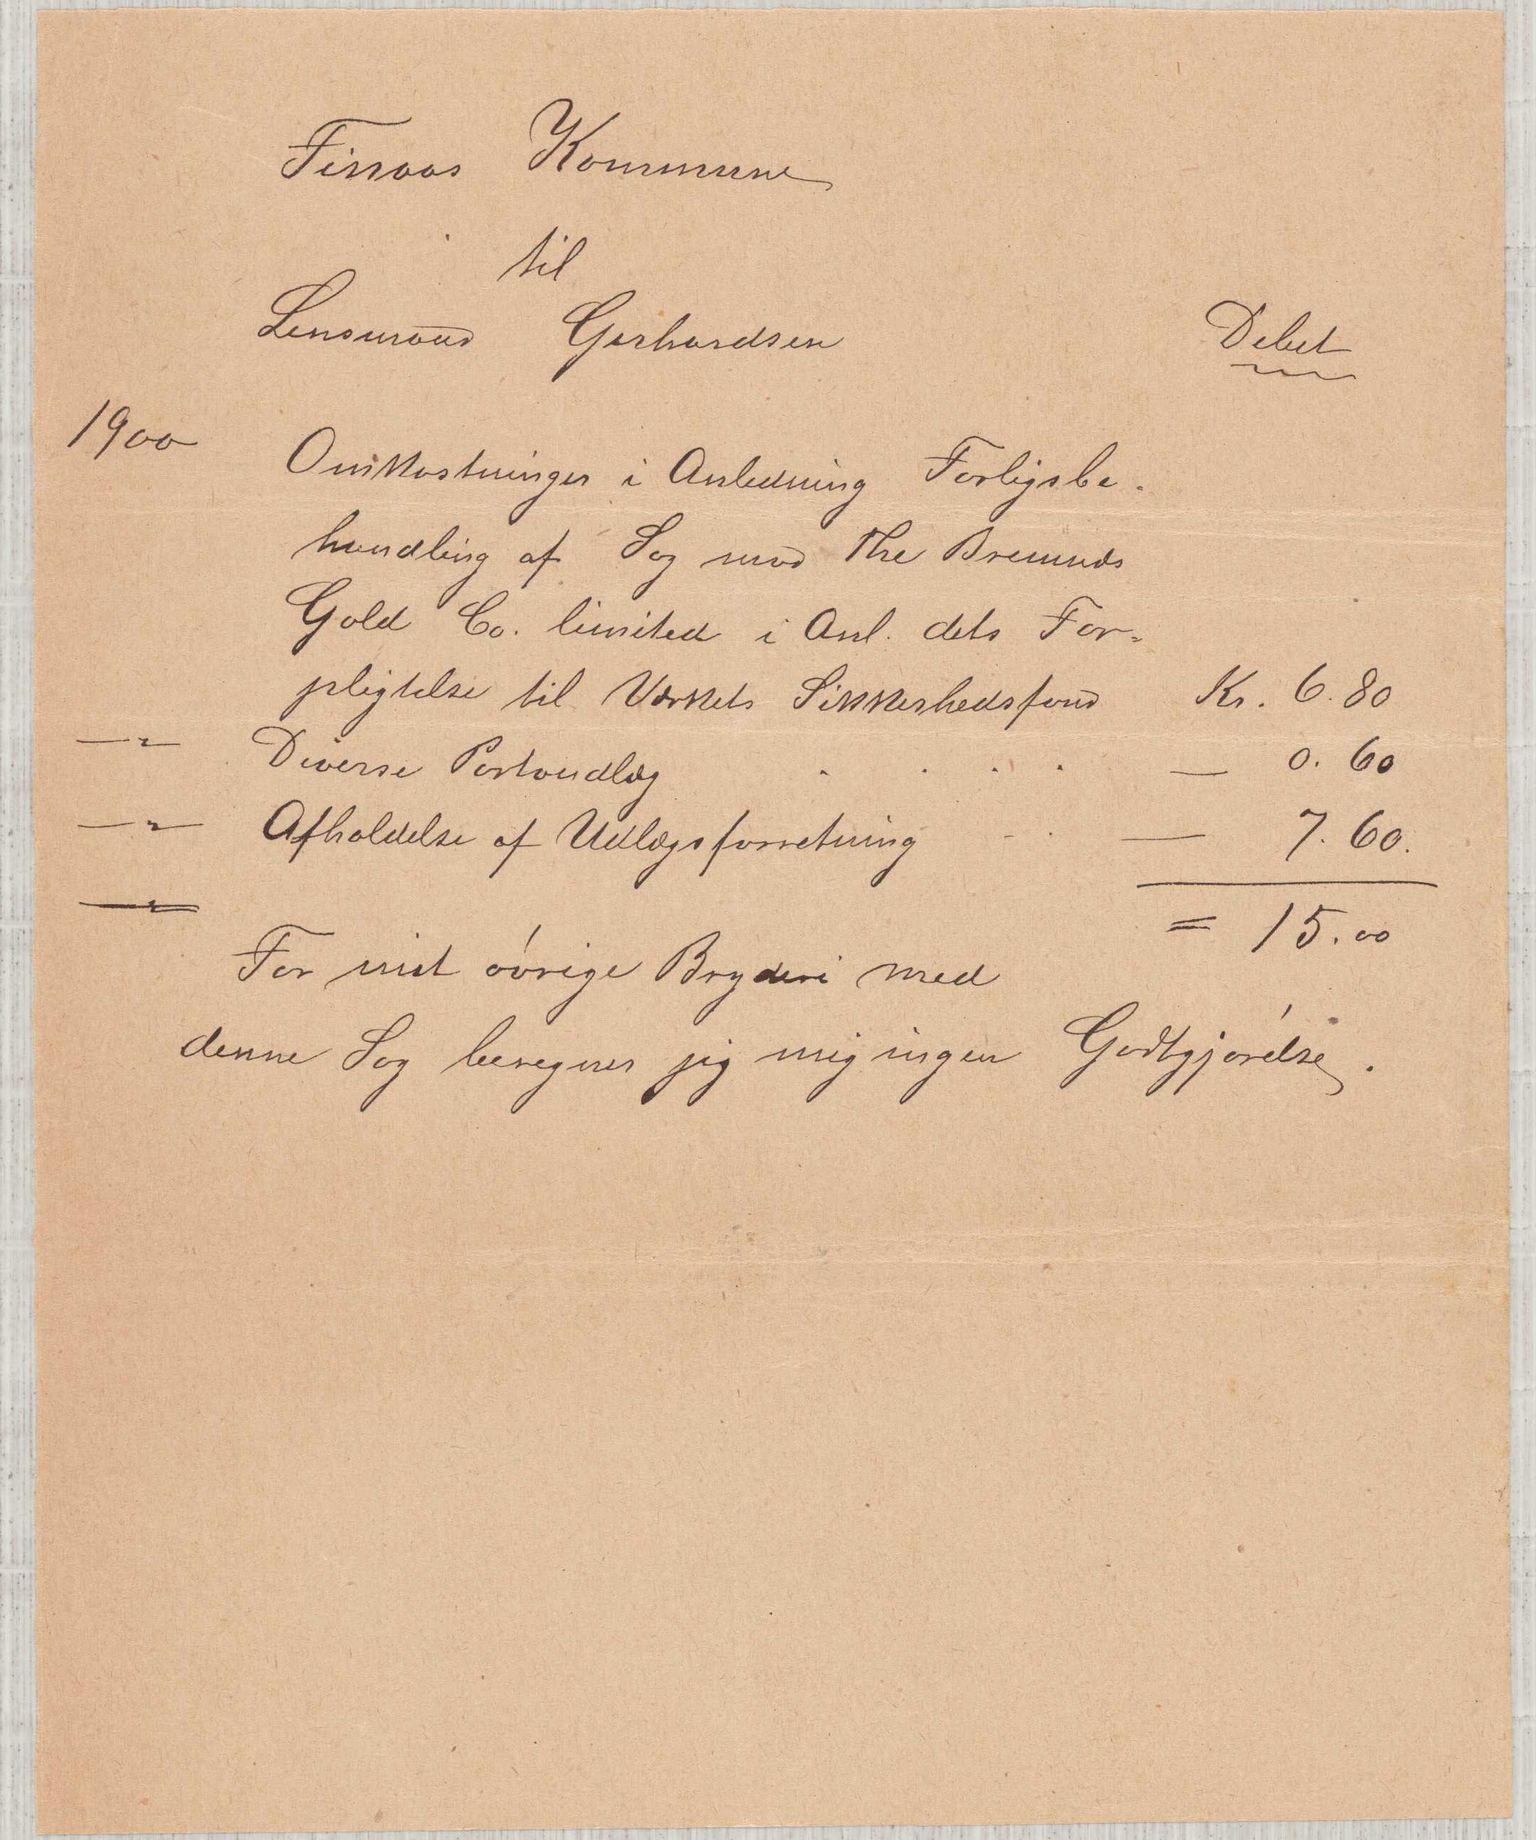 Finnaas Kommune
til
Lensmand Gerhardsen Debet
1900 Omkostninger i Anledning Forligsbe-
handling af Sag mod The Bremnæs
Gold Co. limited i Anl. dets For-
pligtelse til Værkets Sikkerhedsfond Kr. 6.80
—"— Diverse Portoudlæg . . . . — 0.60
—"— Afholdelse af Udlægsforretning - . — 7.60.
—"— = 15.00
For mit øvrige Bryderi med
denne Sag beregner jeg mig ingen Godtgjørelse.